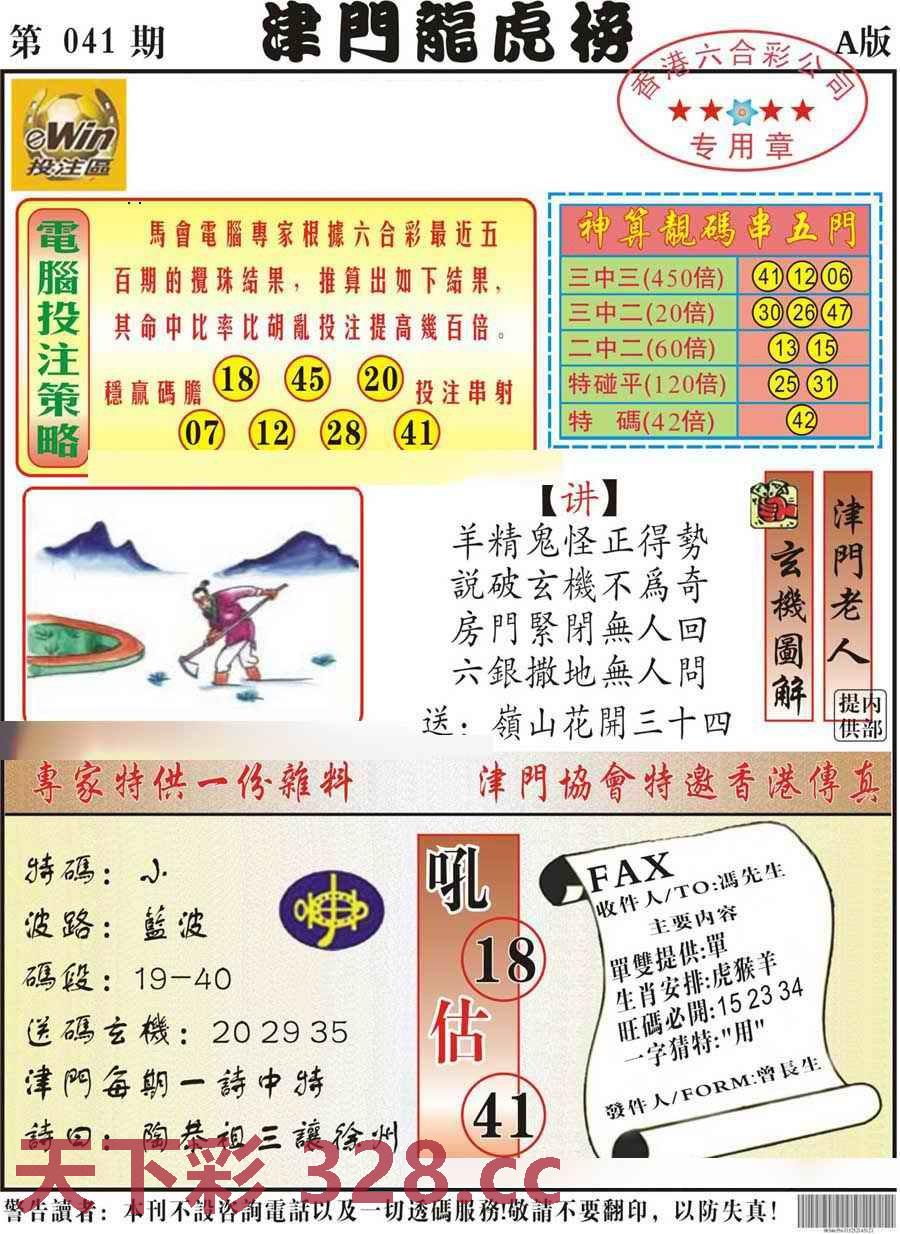 第 041 期
津門龍虎榜
A版
香港六合彩公司
专用章
eWin
投注區
電腦投注策略
馬會電腦專家根據六合彩最近五
百期的攪珠結果，推算出如下結果，
其命中比率比胡亂投注提高幾百倍。
穩贏碼膽 18 45 20 投注串射
07 12 28 41
神算靚碼串五門
三中三(450倍) 41 12 06
三中二(20倍) 30 26 47
二中二(60倍) 13 15
特碰平(120倍) 25 31
特 碼(42倍) 42
【讲】
羊精鬼怪正得勢
説破玄機不爲奇
房門緊閉無人回
六銀撒地無人問
送：嶺山花開三十四
玄機圖解
津門老人
内部提供
專家特供一份雜料
津門協會特邀香港傳真
特碼：小
波路：藍波
碼段：19-40
送碼玄機：20 29 35
津門每期一詩中特
詩曰：陶恭祖三讓徐州
吼
18
估
41
FAX
收件人/TO:馮先生
主要内容
單雙提供:單
生肖安排:虎猴羊
旺碼必開:15 23 34
一字猜特:"用"
發件人/FORM:曾長生
天下彩 328.cc
警告讀者：本刊不設咨詢電話以及一切透碼服務!敬請不要翻印，以防失真！